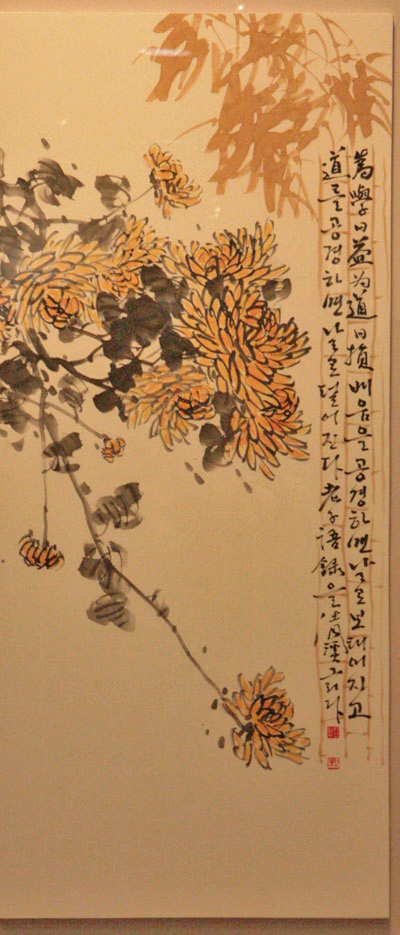 爲學日益为道日損 배움을 공경하면 날로 보태어지고
道를 공경하면 날로 덜어진다 老子語錄을 그리다